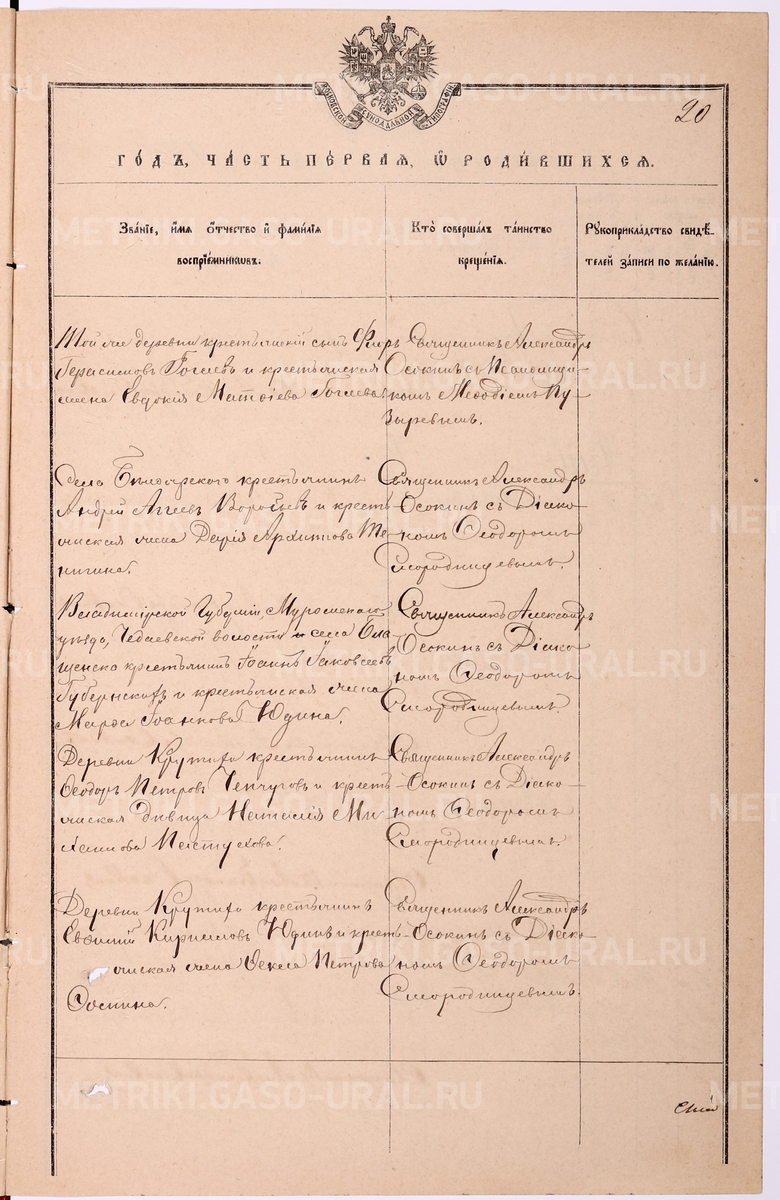 МОСКОВСКОЙ СУНОДАЛЬНОЙ ТИПОГРАФІИ
20
ГОДЪ, ЧАСТЬ ПЕРВАЯ, Ѿ РОДИВШИХСЯ.
Званіе, имя отчество и фамилія
воспріемниковъ.
Кто совершалъ таинство
крещенія.
Рукоприкладство свидѣ-
телей записи по желанію.
Той же деревни крестьянскій сынъ
Герасимовъ Гогиевъ и крестьянская
жена Евдокія Матѳіева Гогиева
Священникъ Александръ
Осокинъ съ Псаломщи-
комъ Меѳодіемъ Пу-
зыревымъ.
Села крестьянинъ
Андрей Агѣевъ Воробьевъ и кресть-
янская жена Дарія Архипова
Священникъ Александръ
Осокинъ съ Діако-
номъ Ѳеодоромъ
Смородинцевымъ.
Владимірской Губерніи, Муромскаго
уѣзда, Чедаевской волости села
крестьянинъ Іоаннъ Іаковлевъ
Губернскихъ и крестьянская жена
Марѳа Іоаннова Юдина.
Священникъ Александръ
Осокинъ съ Діако-
номъ Ѳеодоромъ
Смородинцевымъ.
Деревни Крутиха крестьянинъ
Ѳеодоръ Петровъ Чепчуговъ и кресть-
янская дѣвица Наталія Ми-
хаилова Пастухова.
Священникъ Александръ
Осокинъ съ Діако-
номъ Ѳеодоромъ
Смородинцевымъ.
Деревни Крутиха крестьянинъ
Евѳимій Кириловъ Юдинъ и кресть-
янская жена Ѳекла Петрова
Священникъ Александръ
Осокинъ съ Діако-
номъ Ѳеодоромъ
Смородинцевымъ.
METRIKI.GASO-URAL.RU